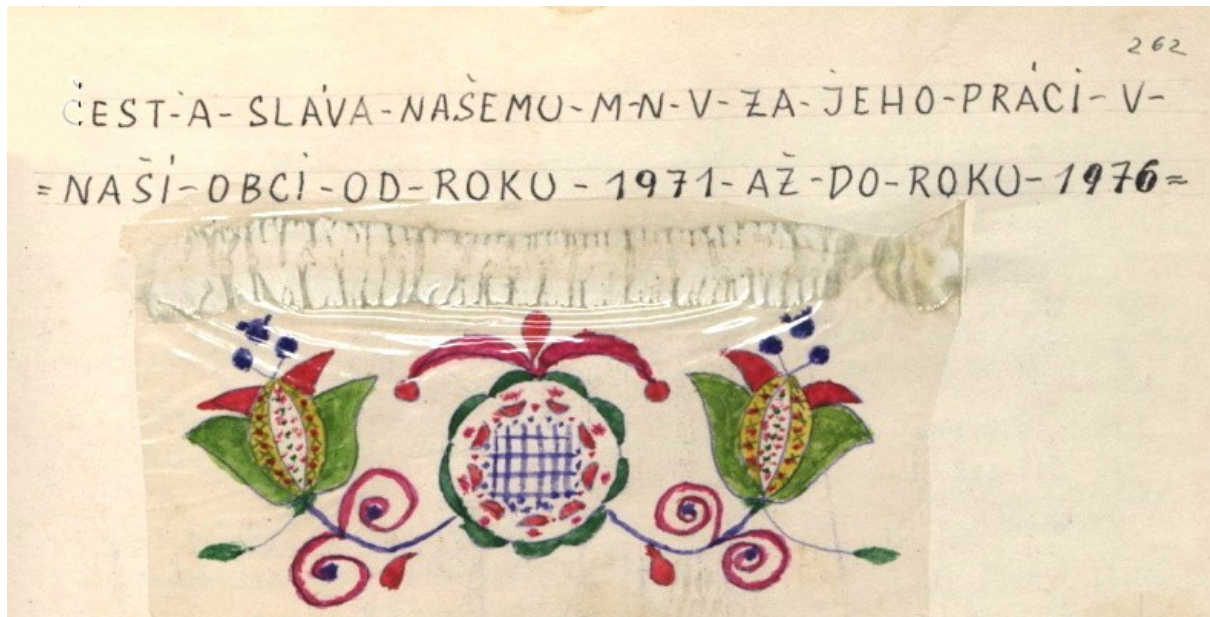 262
ČEST-A-SLÁVA-NAŠEMU-M-N-V-ZA-JEHO-PRÁCI-V-
=NAŠÍ-OBCI-OD-ROKU-1971-AŽ-DO-ROKU-1976=